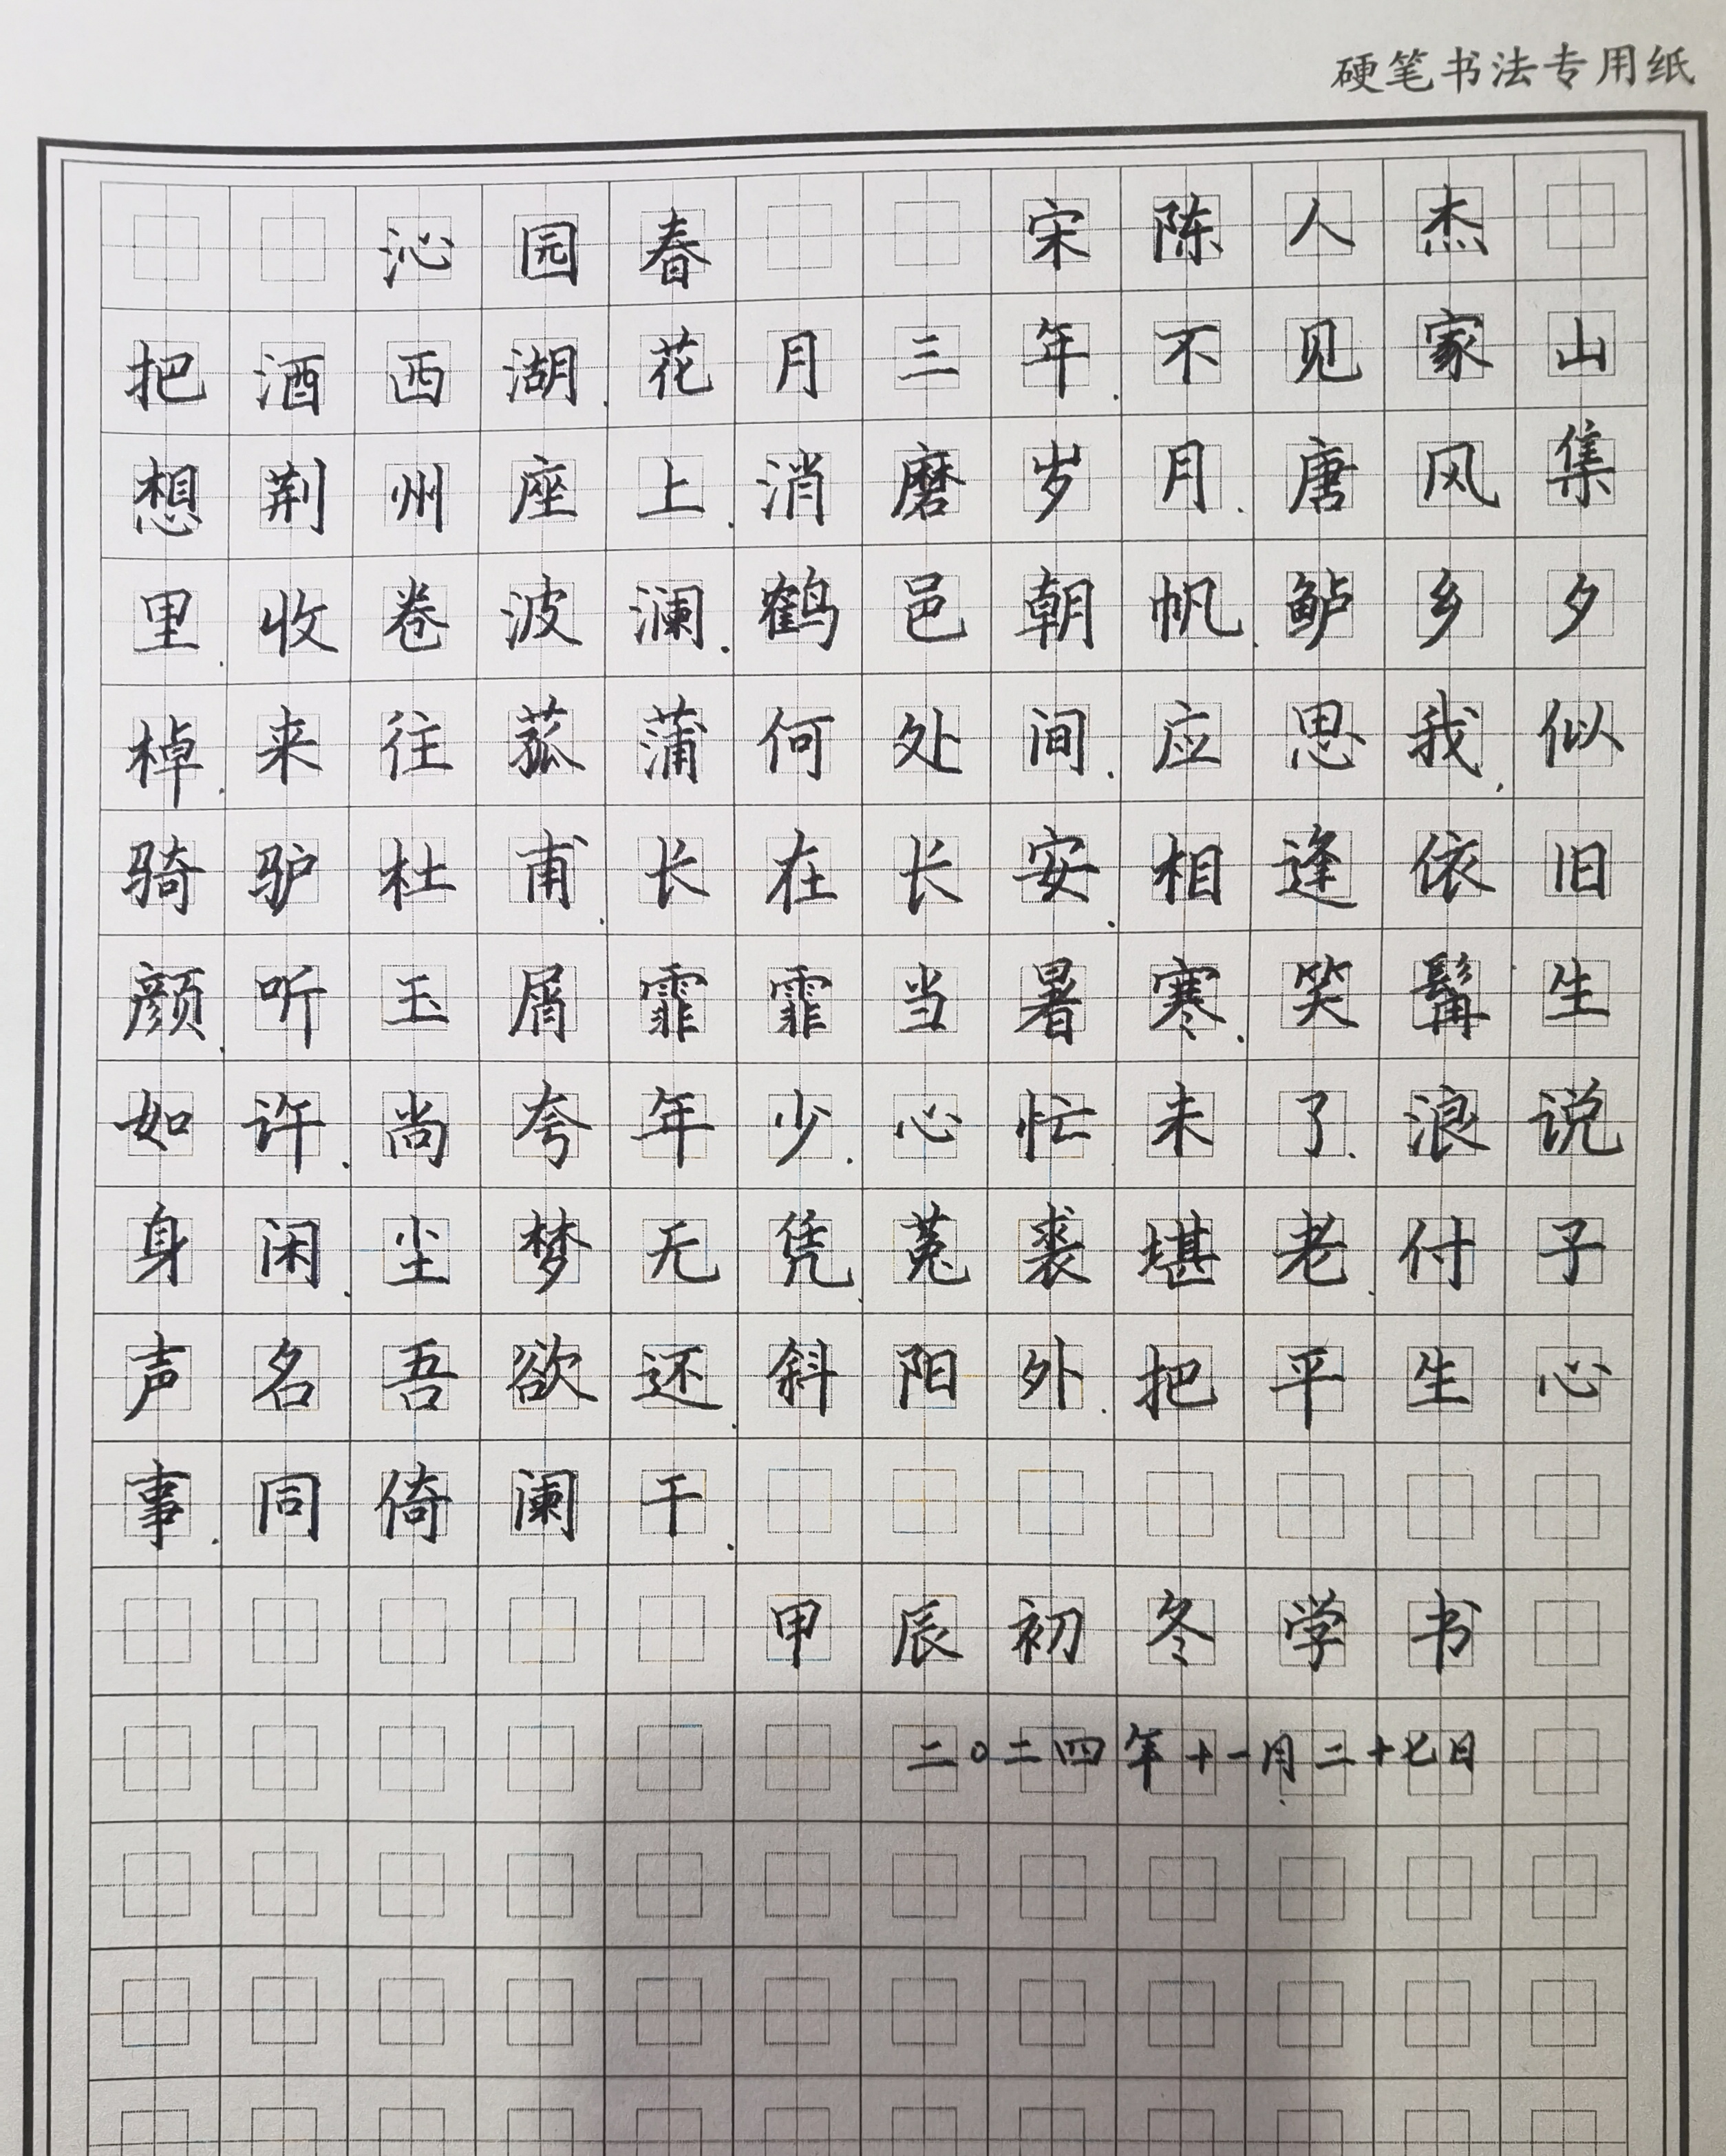 硬笔书法专用纸
沁园春 宋陈人杰
把酒西湖.花月三年.不见家山
想荆州座上.消磨岁月.唐风集
里.收卷波澜.鹤邑朝帆.鲈乡夕
棹.来往菰蒲何处间.应思我.似
骑驴杜甫.长在长安.相逢依旧
颜.听玉屑霏霏当暑寒.笑髯生
如许.尚夸年少.心忙未了.浪说
身闲.尘梦无凭.菟裘堪老.付子
声名吾欲还.斜阳外.把平生心
事.同倚阑干.
甲辰初冬学书
二〇二四年十一月二十七日